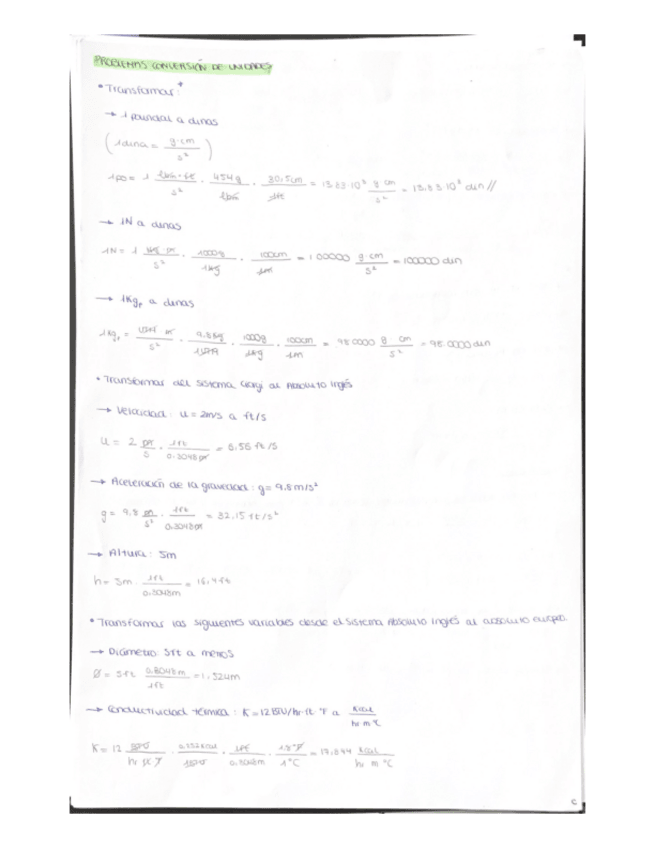 PROBLEMAS CONVERSIÓN DE UNIDADES
* Transformar:
→ 1 poundal a dinas
(1 dina = g·cm / s²)
1 po = 1 lbm·ft / s² · 454 g / 1 lbm · 30,5 cm / 1 ft = 13.83·10³ g cm / s² = 13.83·10³ din //
→ 1N a dinas
1N = 1 kg·m / s² · 1000 g / 1 kg · 100 cm / 1 m = 100000 g·cm / s² = 100000 din
→ 1Kgf a dinas
1 kgf = m / s² · 9.8 kg / · 1000 g / 1 kg · 100 cm / 1 m = 980000 g cm / s² = 980000 din
* Transformar del sistema Giorgi al Absoluto Inglés
→ Velocidad: u = 2 m/s a ft/s
u = 2 m / s · 1 ft / 0.3048 m = 6.56 ft/s
→ Aceleración de la gravedad: g = 9.8 m/s²
g = 9.8 m / s² · 1 ft / 0.3048 m = 32.15 ft/s²
→ Altura: 5m
h = 5m · 1 ft / 0.3048 m = 16.4 ft
* Transformar las siguientes variables desde el sistema Absoluto Inglés al absoluto europeo.
→ Diámetro: 5ft a metros
Ø = 5 ft 0.3048 m / 1 ft = 1.524 m
→ Conductividad térmica: K = 12 BTU/hr·ft °F a Kcal / hr m °C
K = 12 BTU / hr ft °F · 0.252 Kcal / 1 BTU · 1 ft / 0.3048 m · 1.8 °F / 1 °C = 17.844 Kcal / hr m °C